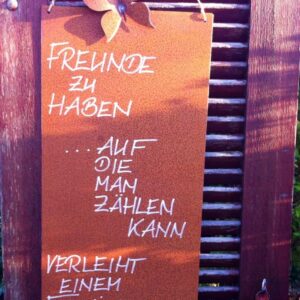 FREUNDE
ZU
HABEN
...AUF
DIE
MAN
ZÄHLEN
KANN
VERLEIHT
EINEM